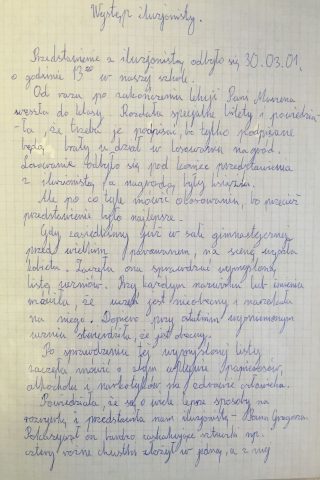 Występ iluzjonisty.
Przedstawienie z iluzjonistą odbyło się 30.03.01,
o godzinie 13⁰⁰ w naszej szkole.
Od razu po zakończeniu lekcji Pani
weszła do klasy. Rozdała specjalne bilety i powiedzia-
-ła, że trzeba je podpisać, bo tylko podpisane
będą brały udział w losowaniu nagród.
Losowanie odbyło się pod koniec przedstawienia
z iluzjonistą, a nagrodą były
Ale po co tyle mówić o losowaniu, bo przecież
przedstawienie było najlepsze.
Gdy zasiedliśmy już w sali gimnastycznej
przed wielkim parawanem, na scenę wyszła
kobieta. Zaczęła ona sprawdzać wymyśloną
listę uczniów. Przy każdym nazwisku lub imieniu
mówiła, że uczeń jest nieobecny i narzekała
na niego. Dopiero przy ostatnim wymienionym
uczniu stwierdziła, że jest obecny.
Po sprawdzeniu tej wymyślonej listy
zaczęła mówić o złym wpływie papierosów,
alkoholu i narkotyków na zdrowie człowieka.
Powiedziała, że są o wiele lepsze sposoby na
rozrywkę i przedstawiła nam iluzjonistę - Pana Grzegorza.
Pokazywał on bardzo zaskakujące sztuczki np.
cztery różne chustki złożył w jedną, a z niej